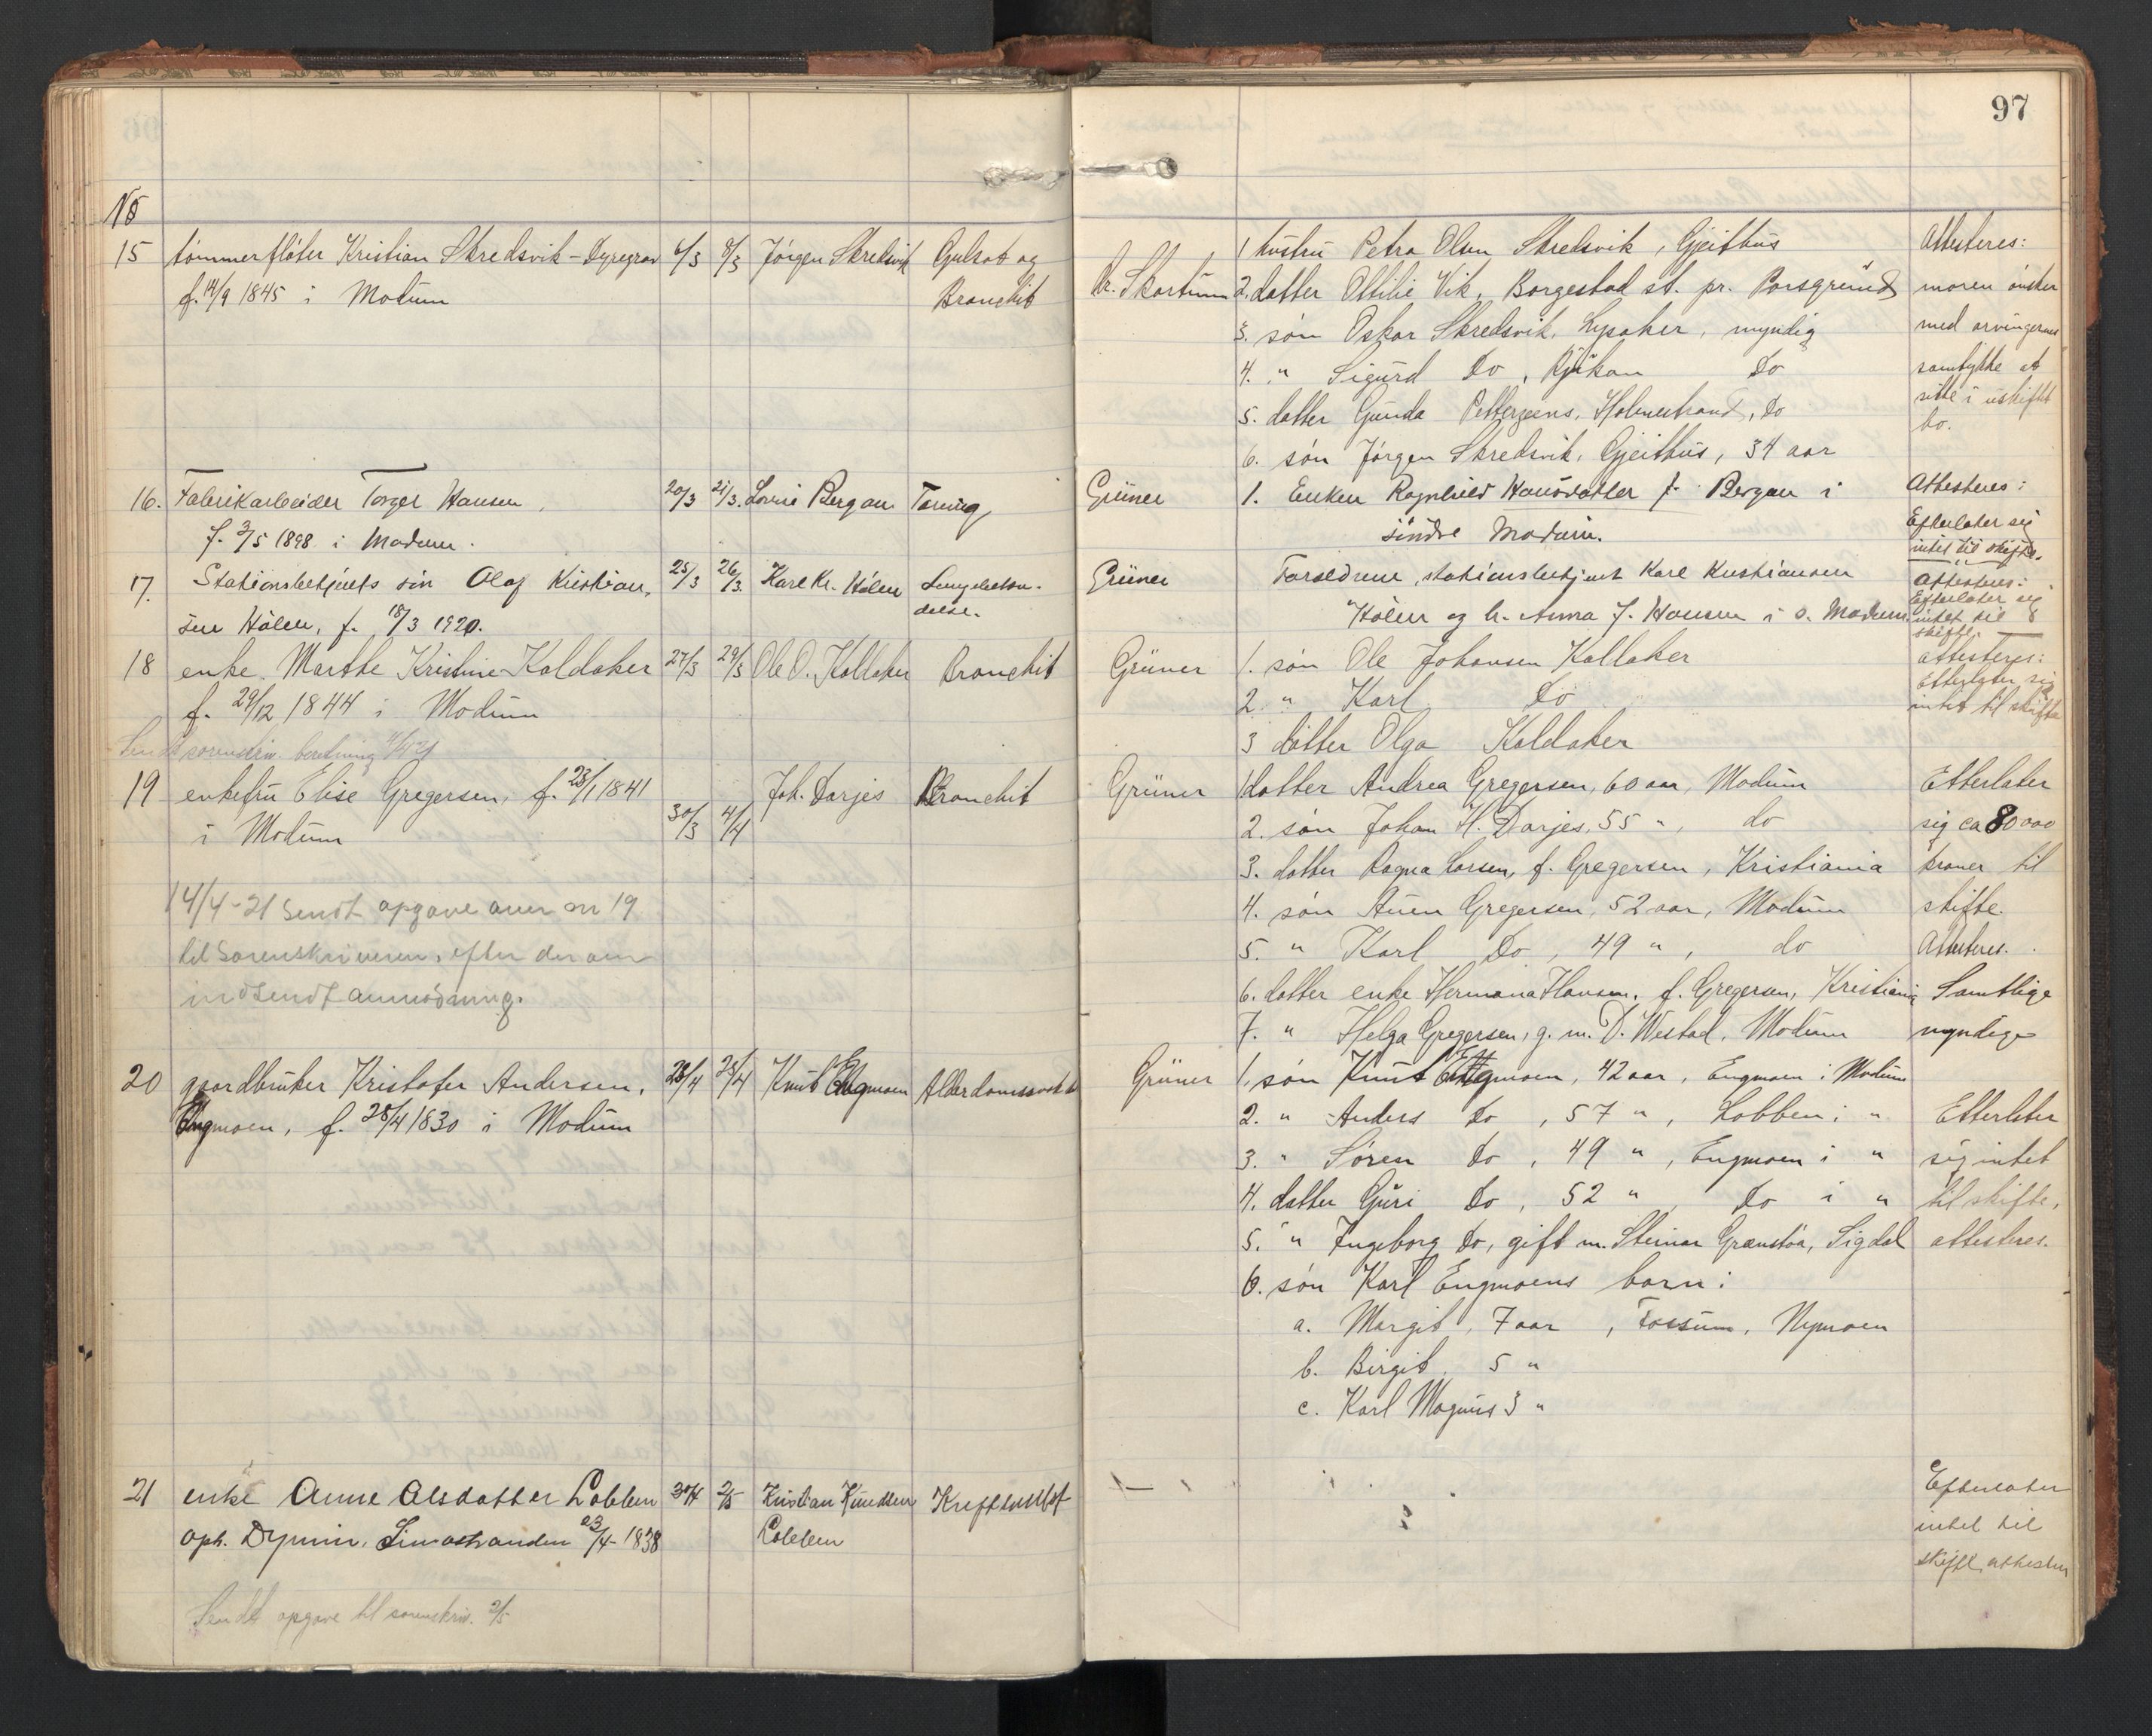 97
No
15 tømmerfløter Kristian Skredsvik - Dyregrav 6/3 8/3 Jørgen Skredsvik Gulsot og
f. 14/9 1845 i Modum Bronchit
Dr. Skartum
1 hustru Petra Olsen Skredsvik, Gjeithus
2. datter Ottilie Vik, Borgestad st. pr. Porsgrund
3. søn Oskar Skredsvik, Lysaker, myndig
4. " Sigurd Do, Rjukan Do
5. datter Gunda Pettersens, Holmestrand, Do
6. søn Jørgen Skredsvik, Gjeithus, 34 aar
Attesteres:
moren ønsker
med arvingernes
samtykke at
sitte i uskiftet
bo.
16. Fabrikarbeider Torger Hansen, 20/3 21/3. Lovise Bergan Tæring
f. 3/5 1898 i Modum.
Grüner
1. Enken Ragnhild Hansdatter f. Bergan i
søndre Modum.
Attesteres:
Efterlater sig
intet til skifte.
17. Stationsbetjents søn Olaf Kristian- 25/3 26/3. Karl Kr. Hölen Lungebetæn-
sen Hölen, f. 18/3 1920. delse.
Grüner
Foreldrene, stationsbetjent Karl Kristiansen
Hölen og h. Anna f. Hansen i s. Modum.
Attesteres:
Efterlater sig
intet til
skifte.
18 enke Marthe Kristine Kaldaker 27/3 29/3 Ole O. Kallaker Bronchit
f. 29/12 1844 i Modum
Sendt sorenskriv. beretning 11/4 21
Grüner
1. søn Ole Johansen Kallaker
2. " Karl Do
3 datter Olga Kaldaker
attesteres:
Etterlater sig
intet til skifte
19 enkefru Elise Gregersen, f. 23/1 1841 30/3 4/4 Joh. Darjes Bronchit
i Modum
14/4-21 sendt opgave over nr 19
til Sorenskriveren, efter derom
indsendt anmodning.
Grüner
1 datter Andrea Gregersen, 60 aar, Modum
2. søn Johan H. Darjes, 55 ", do
3. datter Ragna Larsen, f. Gregersen, Kristiania
4. søn Auen Gregersen, 52 aar, Modum
5. " Karl Do, 49 ", do
6. datter enke Hermana Hansen, f. Gregersen, Kristiania
7. " Helga Gregersen, g. m. D. Westad, Modum
Etterlater
sig ca 80 000
kroner til
skifte.
Attesteres.
Samtlige
myndige
20 gaardbruker Kristofer Andersen, 23/4 25/4 Knut Engmoen Alderdomssvakhet
Engmoen, f. 28/4 1830 i Modum
Grüner
1. søn Knut Engmoen, 42 aar, Engmoen i Modum
2. " Anders Do, 57 ", Lobben i "
3. " Søren Do, 49 ", Engmoen i "
4. datter Guri Do, 52 " Do i "
5. " Ingeborg Do, gift m. Steinar Grænstøa, Sigdal
6. søn Karl Engmoens barn:
a. Margit, 7 aar, Fossum, Nymoen
b. Birgit, 5 "
c. Karl Magnus 3 "
Etterlater
sig intet
til skifte,
attesteres.
21 enke Anne Olsdatter Lobben 30/4 2/5 Kristian Knudsen Kreftsvulst
oph. Dynnin, Simostranden 23/4-1838 Lobben
Sendt opgave til sorenskriv. 2/5
Efterlater
intet til
skifte, attesteres